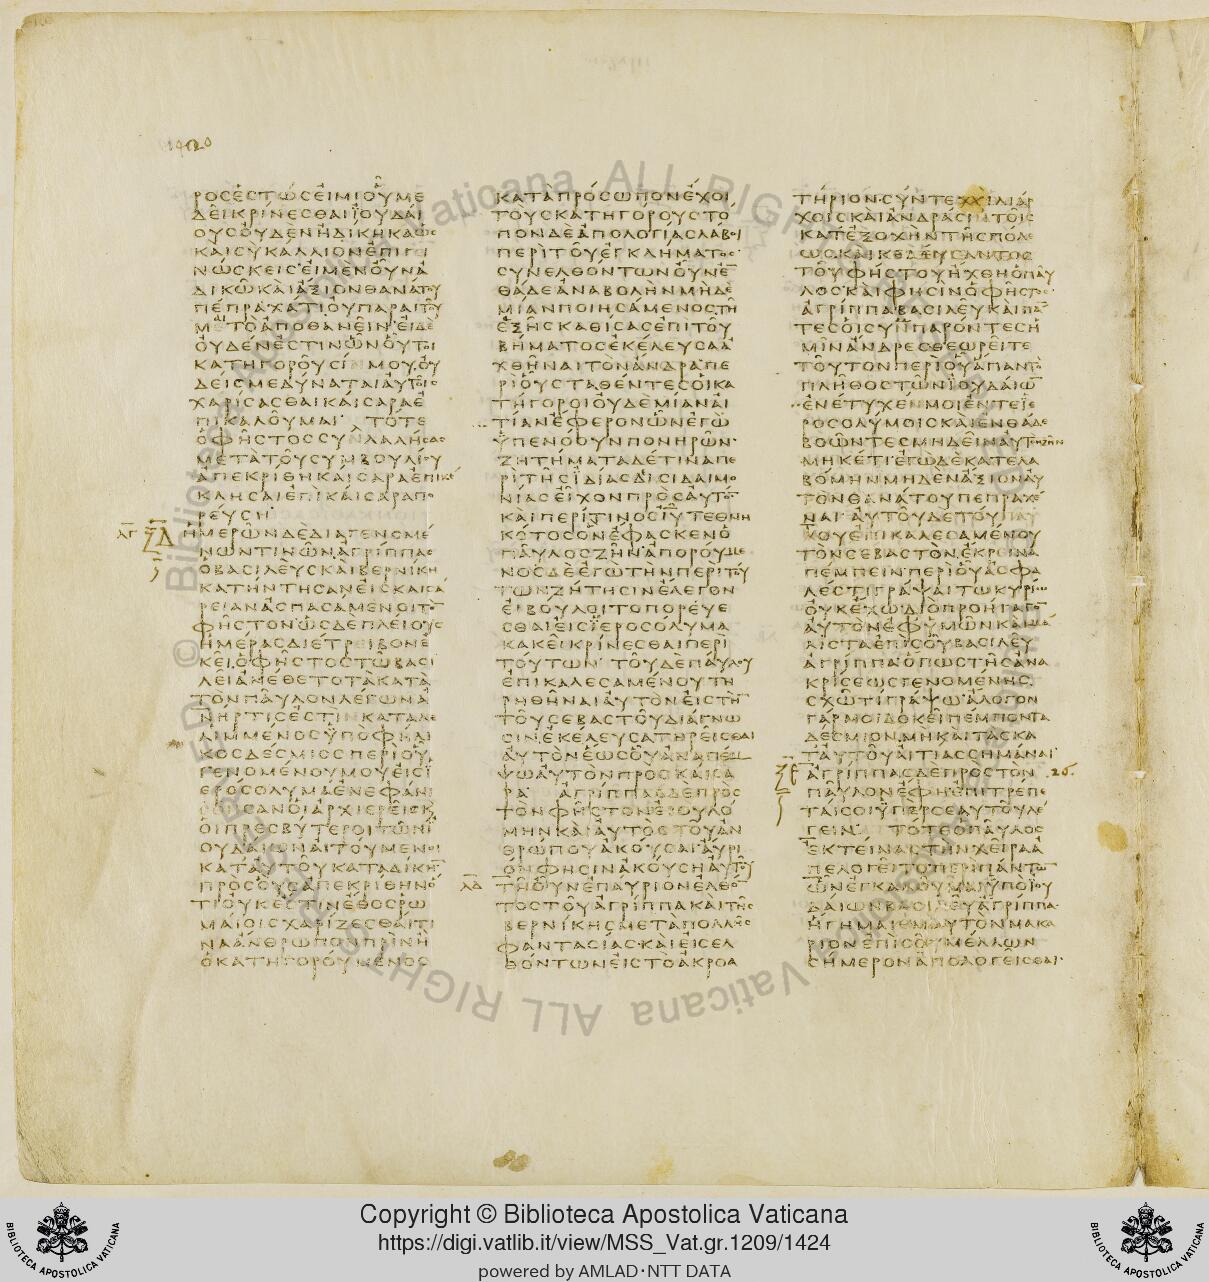 ΡΟϹΕϹΤΩϹΕΙΜΙΟΥΜΕ
ΔΕΙΚΡΙΝΕϹΘΑΙΪΟΥΔΑΙ
ΟΥϹΟΥΔΕΝΗΔΙΚΗΚΑΩϹ
ΚΑΙϹΥΚΑΛΛΙΟΝΕΠΙΓΙ
ΝΩϹΚΕΙϹΕΙΜΕΝΟΥΝΑ
ΔΙΚΩΚΑΙΑΞΙΟΝΘΑΝΑΤΟΥ
ΠΕΠΡΑΧΑΤΙΟΥΠΑΡΑΙΤΟΥ
ΜΕΤΟΑΠΟΘΑΝΕΙΝΕΙΔΕ
ΟΥΔΕΝΕϹΤΙΝΩΝΟΥΤΟΙ
ΚΑΤΗΓΟΡΟΥϹΙΝΜΟΥΟΥ
ΔΕΙϹΜΕΔΥΝΑΤΑΙΑΥΤΟΙϹ
ΧΑΡΙϹΑϹΘΑΙΚΑΙϹΑΡΑΕ
ΠΙΚΑΛΟΥΜΑΙ ΤΟΤΕ
ΟΦΗϹΤΟϹϹΥΝΛΑΛΗϹΑϹ
ΜΕΤΑΤΟΥϹΥΜΒΟΥΛΙΟΥ
ΑΠΕΚΡΙΘΗΚΑΙϹΑΡΑΕΠΙΚΕ
ΚΛΗϹΑΙΕΠΙΚΑΙϹΑΡΑΠΟ
ΡΕΥϹΗ
ΗΜΕΡΩΝΔΕΔΙΑΓΕΝΟΜΕ
ΝΩΝΤΙΝΩΝΑΓΡΙΠΠΑϹ
ΟΒΑϹΙΛΕΥϹΚΑΙΒΕΡΝΙΚΗ
ΚΑΤΗΝΤΗϹΑΝΕΙϹΚΑΙϹΑ
ΡΕΙΑΝΑϹΠΑϹΑΜΕΝΟΙΤΟ̅
ΦΗϹΤΟΝΩϹΔΕΠΛΕΙΟΥϹ
ΗΜΕΡΑϹΔΙΕΤΡΕΙΒΟΝΕ
ΚΕΙΟΦΗϹΤΟϹΤΩΒΑϹΙ
ΛΕΙΑΝΕΘΕΤΟΤΑΚΑΤΑ
ΤΟΝΠΑΥΛΟΝΛΕΓΩΝΑ
ΝΗΡΤΙϹΕϹΤΙΝΚΑΤΑΛΕ
ΛΙΜΜΕΝΟϹΫΠΟΦΗΛΙ
ΚΟϹΔΕϹΜΙΟϹΠΕΡΙΟΥ
ΓΕΝΟΜΕΝΟΥΜΟΥΕΙϹΪ
ΕΡΟϹΟΛΥΜΑΕΝΕΦΑΝΙ
ϹΑΝΟΙΑΡΧΙΕΡΕΙϹΚ
ΟΙΠΡΕϹΒΥΤΕΡΟΙΤΩΝΪ
ΟΥΔΑΙΩΝΑΙΤΟΥΜΕΝΟΙ
ΚΑΤΑΥΤΟΥΚΑΤΑΔΙΚΗ̅
ΠΡΟϹΟΥϹΑΠΕΚΡΙΘΗΝΟ
ΤΙΟΥΚΕϹΤΙΝΕΘΟϹΡΩ
ΜΑΙΟΙϹΧΑΡΙΖΕϹΘΑΙΤΙ
ΝΑΑΝΘΡΩΠΟΝΠΡΙΝΗ
ΟΚΑΤΗΓΟΡΟΥΜΕΝΟϹ
ΚΑΤΑΠΡΟϹΩΠΟΝΕΧΟΙ
ΤΟΥϹΚΑΤΗΓΟΡΟΥϹΤΟ
ΠΟΝΔΕΑΠΟΛΟΓΙΑϹΛΑΒΟΙ
ΠΕΡΙΤΟΥΕΓΚΛΗΜΑΤΟϹ
ϹΥΝΕΛΘΟΝΤΩΝΟΥΝΕ̅
ΘΑΔΕΑΝΑΒΟΛΗΝΜΗΔΕ
ΜΙΑΝΠΟΙΗϹΑΜΕΝΟϹΤΗ
ΕΞΗϹΚΑΘΙϹΑϹΕΠΙΤΟΥ
ΒΗΜΑΤΟϹΕΚΕΛΕΥϹΑΑ
ΧΘΗΝΑΙΤΟΝΑΝΔΡΑΠΕ
ΡΙΟΥϹΤΑΘΕΝΤΕϹΟΙΚΑ
ΤΗΓΟΡΟΙΟΥΔΕΜΙΑΝΑΙ
ΤΙΑΝΕΦΕΡΟΝΩΝΕΓΩ
ΫΠΕΝΟΟΥΝΠΟΝΗΡΩΝ
ΖΗΤΗΜΑΤΑΔΕΤΙΝΑΠΕ
ΡΙΤΗϹΙΔΙΑϹΔΙϹΙΔΑΙΜΟ
ΝΙΑϹΕΙΧΟΝΠΡΟϹΑΥΤΟ̅
ΚΑΙΠΕΡΙΤΙΝΟϹΙ̅Υ̅ΤΕΘΝΗ
ΚΟΤΟϹΟΝΕΦΑϹΚΕΝΟ
ΠΑΥΛΟϹΖΗΝΑΠΟΡΟΥΜΕ
ΝΟϹΔΕΕΓΩΤΗΝΠΕΡΙΤΟΥ
ΤΩΝΖΗΤΗϹΙΝΕΛΕΓΟΝ
ΕΙΒΟΥΛΟΙΤΟΠΟΡΕΥΕ
ϹΘΑΙΕΙϹΪΕΡΟϹΟΛΥΜΑ
ΚΑΚΕΙΚΡΙΝΕϹΘΑΙΠΕΡΙ
ΤΟΥΤΩΝ ΤΟΥΔΕΠΑΥΛΟΥ
ΕΠΙΚΑΛΕϹΑΜΕΝΟΥΤΗ
ΡΗΘΗΝΑΙΑΥΤΟΝΕΙϹΤΗ̅
ΤΟΥϹΕΒΑϹΤΟΥΔΙΑΓΝΩ
ϹΙΝΕΚΕΛΕΥϹΑΤΗΡΕΙϹΘΑΙ
ΑΥΤΟΝΕΩϹΟΥΑΝΑΠΕΜ
ΨΩΑΥΤΟΝΠΡΟϹΚΑΙϹΑ
ΡΑ ΑΓΡΙΠΠΑϹΔΕΠΡΟϹ
ΤΟΝΦΗϹΤΟΝΕΒΟΥΛΟ
ΜΗΝΚΑΙΑΥΤΟϹΤΟΥΑΝ
ΘΡΩΠΟΥΑΚΟΥϹΑΙΑΥΡΙ
ΟΝΦΗϹΙΝΑΚΟΥϹΗΑΥΤΟΥ
ΤΗΟΥΝΕΠΑΥΡΙΟΝΕΛΘΟ̅
ΤΟϹΤΟΥΑΓΡΙΠΠΑΚΑΙΤΗϹ
ΒΕΡΝΙΚΗϹΜΕΤΑΠΟΛΛΗϹ
ΦΑΝΤΑϹΙΑϹΚΑΙΕΙϹΕΛ
ΘΟΝΤΩΝΕΙϹΤΟΑΚΡΟΑ
ΤΗΡΙΟΝϹΥΝΤΕΧΙΛΙΑΡ
ΧΟΙϹΚΑΙΑΝΔΡΑϹΙΤΟΙϹ
ΚΑΤΕΞΟΧΗΝΤΗϹΠΟΛΕ
ΩϹΚΑΙΚΕΛΕΥϹΑΝΤΟϹ
ΤΟΥΦΗϹΤΟΥΗΧΘΗΟΠΑΥ
ΛΟϹΚΑΙΦΗϹΙΝΟΦΗϹΤΟϹ
ΑΓΡΙΠΠΑΒΑϹΙΛΕΥΚΑΙΠΑ̅
ΤΕϹΟΙϹΥΠΑΡΟΝΤΕϹΗ
ΜΙΝΑΝΔΡΕϹΘΕΩΡΕΙΤΕ
ΤΟΥΤΟΝΠΕΡΙΟΥΑΠΑΝΤΟ
ΠΛΗΘΟϹΤΩΝΪΟΥΔΑΙΩ̅
ΕΝΕΤΥΧΕΝΜΟΙΕΝΤΕΪΕ
ΡΟϹΟΛΥΜΟΙϹΚΑΙΕΝΘΑΔΕ
ΒΟΩΝΤΕϹΜΗΔΕΙΝΑΥΤΟΝΖΗΝ
ΜΗΚΕΤΙΕΓΩΔΕΚΑΤΕΛΑ
ΒΟΜΗΝΜΗΔΕΝΑΞΙΟΝΑΥ
ΤΟΝΘΑΝΑΤΟΥΠΕΠΡΑΧΕ
ΝΑΙΑΥΤΟΥΔΕΤΟΥΠΑΥ
ΛΟΥΕΠΙΚΑΛΕϹΑΜΕΝΟΥ
ΤΟΝϹΕΒΑϹΤΟΝΕΚΡΕΙΝΑ
ΠΕΜΠΕΙΝΠΕΡΙΟΥΑϹΦΑ
ΛΕϹΤΙΓΡΑΨΑΙΤΩΚΥΡΙΩ
ΟΥΚΕΧΩΔΙΟΠΡΟΗΓΑΓΟ̅
ΑΥΤΟΝΕΦΥΜΩΝΚΑΙΜΑ
ΛΙϹΤΑΕΠΙϹΟΥΒΑϹΙΛΕΥ
ΑΓΡΙΠΠΑΟΠΩϹΤΗϹΑΝΑ
ΚΡΙϹΕΩϹΓΕΝΟΜΕΝΗϹ
ϹΧΩΤΙΓΡΑΨΩΑΛΟΓΟΝ
ΓΑΡΜΟΙΔΟΚΕΙΠΕΜΠΟΝΤΑ
ΔΕϹΜΙΟΝΜΗΚΑΙΤΑϹΚΑ
ΤΑΥΤΟΥΑΙΤΙΑϹϹΗΜΑΝΑΙ
ΑΓΡΙΠΠΑϹΔΕΠΡΟϹΤΟΝ
ΠΑΥΛΟΝΕΦΗΕΠΙΤΡΕΠΕ
ΤΑΙϹΟΙΫΠΕΡϹΕΑΥΤΟΥΛΕ
ΓΕΙΝ ΤΟΤΕΟΠΑΥΛΟϹ
ΕΚΤΕΙΝΑϹΤΗΝΧΕΙΡΑΑ
ΠΕΛΟΓΕΙΤΟΠΕΡΙΠΑΝΤΩ̅
ΩΝΕΓΚΑΛΟΥΜΑΙΫΠΟΪΟΥ
ΔΑΙΩΝΒΑϹΙΛΕΥΑΓΡΙΠΠΑ
ΗΓΗΜΑΙΕΜΑΥΤΟΝΜΑΚΑ
ΡΙΟΝΕΠΙϹΟΥΜΕΛΛΩΝ
ϹΗΜΕΡΟΝΑΠΟΛΟΓΕΙϹΘΑΙ
Copyright © Biblioteca Apostolica Vaticana
https://digi.vatlib.it/view/MSS_Vat.gr.1209/1424
powered by AMLAD·NTT DATA